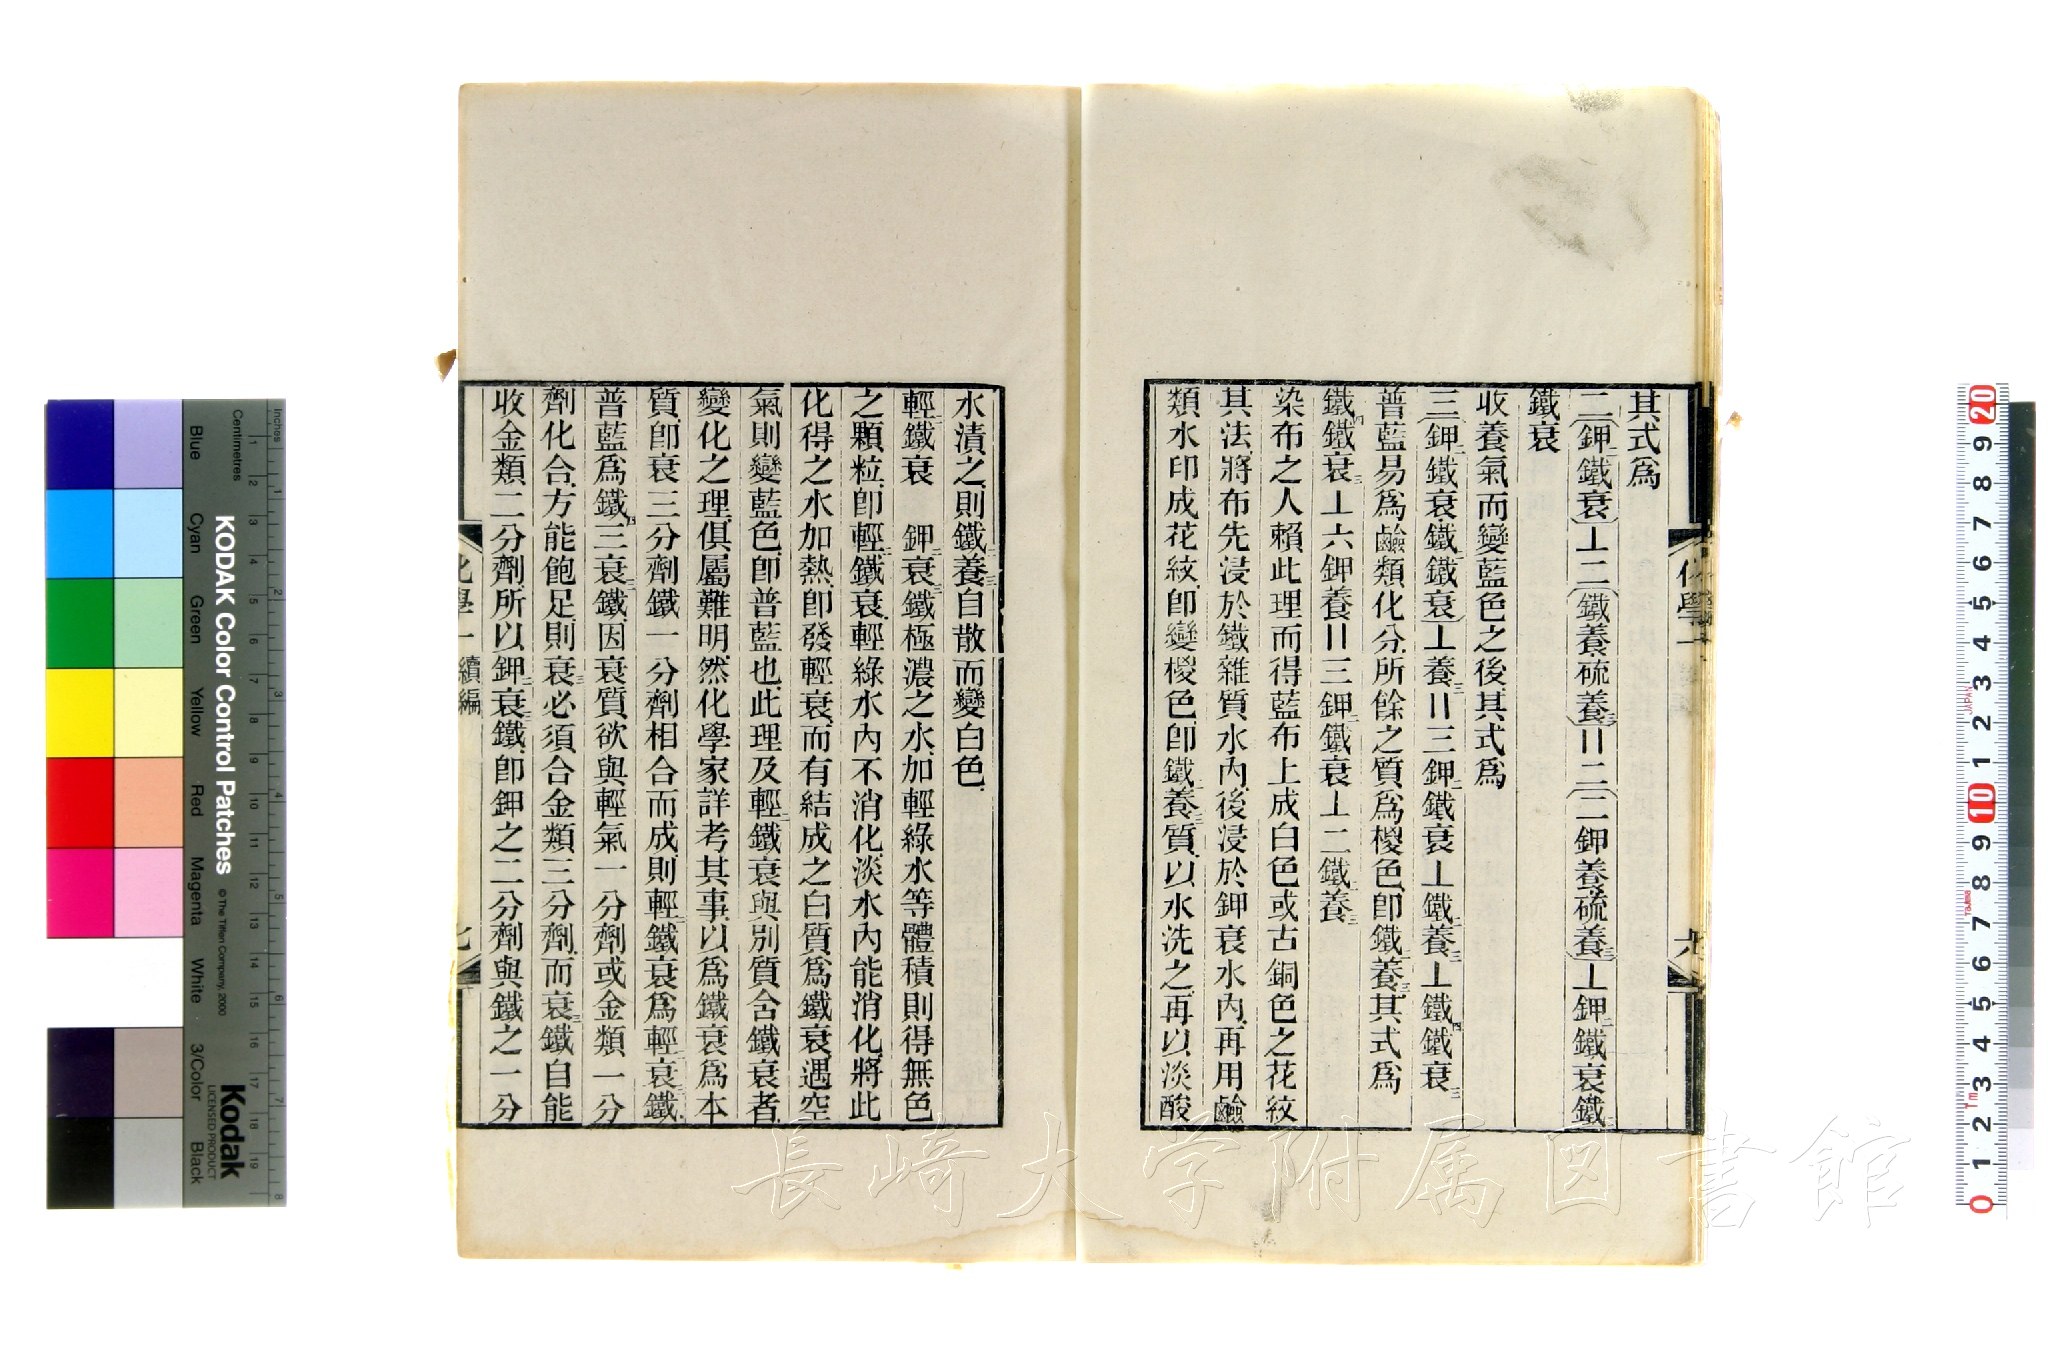 其式爲
二(鉀二鐵衰三)⊥二(鐵養硫養三)॥二(二鉀養硫養三)⊥鉀二鐵衰三鐵二
鐵衰三
收養氣而變藍色之後其式爲
三(鉀二鐵衰三鐵二鐵衰三)⊥養三॥三鉀二鐵衰三⊥鐵二養三⊥鐵四鐵衰三
普藍易爲鹼類化分所餘之質爲椶色卽鐵二養三其式爲
鐵四鐵衰三⊥六鉀養॥三鉀二鐵衰三⊥二鐵二養三
染布之人賴此理而得藍布上成白色或古銅色之花紋
其法將布先浸於鐵雜質水內後浸於鉀衰水內再用鹼
類水印成花紋卽變椶色卽鐵二養三質以水洗之再以淡酸
水漬之則鐵二養三自散而變白色
輕二鐵衰三 鉀二衰三鐵極濃之水加輕綠水等體積則得無色
之顆粒卽輕二鐵衰三輕綠水內不消化淡水內能消化將此
化得之水加熱卽發輕衰而有結成之白質爲鐵衰遇空
氣則變藍色卽普藍也此理及輕二鐵衰三與別質合鐵衰者
變化之理俱屬難明然化學家詳考其事以爲鐵衰三爲本
質卽衰三分劑鐵一分劑相合而成則輕二鐵衰三爲輕二衰三鐵
普藍爲鐵四三衰三鐵因衰質欲與輕氣一分劑或金類一分
劑化合方能飽足則衰三必須合金類三分劑而衰三鐵自能
收金類二分劑所以鉀二衰三鐵卽鉀之二分劑與鐵之一分
化學一 續編
化學一
Inches
Centimetres
KODAK Color Control Patches
© The Tiffen Company, 2000
Kodak
LICENSED PRODUCT
Blue Cyan Green Yellow Red Magenta White 3/Color Black
長崎大学附属図書館